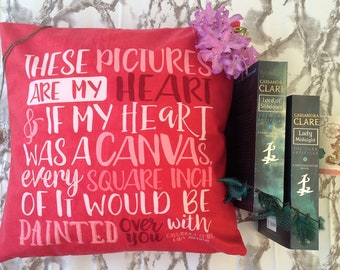 THESE PICTURES
ARE MY HEART
& IF MY HEART
WAS A CANVAS,
every SQUARE INCH
OF IT WOULD BE
PAINTED over YOU with
CASSANDRA CLARE
LADY MIDNIGHT
CASSANDRA
CLARE
Lord of
Shadows
CASSANDRA
CLARE
Lady
Midnight
THE DARK
ARTIFICES